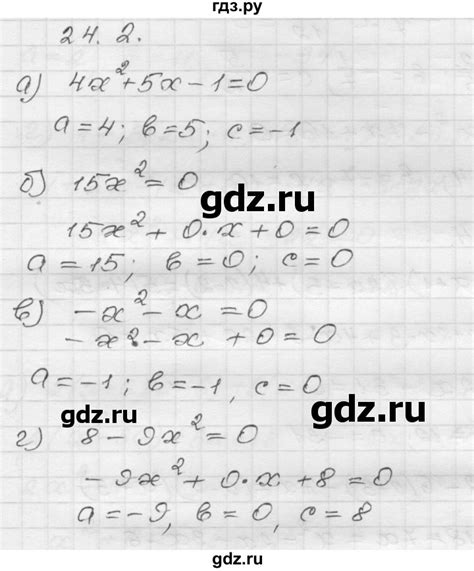 гдз.ру
24.2.
а) 4x²+5x-1=0
a=4; b=5; c=-1
б) 15x²=0
gdz.ru
15x²+0·x+0=0
a=15; b=0; c=0
в) -x²-x=0
-x²-x+0=0
a=-1; b=-1, c=0
gdz.ru
gdz.ru
г) 8-9x²=0
-9x²+0·x+8=0
a=-9, b=0, c=8
gdz.ru